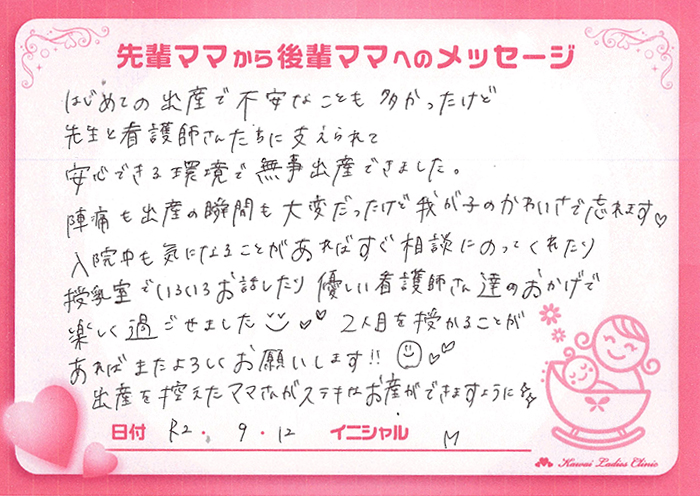 先輩ママから後輩ママへのメッセージ
はじめての出産で不安なことも多かったけど
先生と看護師さんたちに支えられて
安心できる環境で無事出産できました。
陣痛も出産の瞬間も大変だったけど我が子のかわいさで忘れます♡
入院中も気になることがあればすぐ相談にのってくれたり
授乳室でいろいろお話したり優しい看護師さん達のおかげで
楽しく過ごせました 2人目を授かることが
あればまたよろしくお願いします!!
出産を控えたママさんがステキなお産ができますように
日付 R2・9・12 イニシャル M
Kawai Ladies Clinic